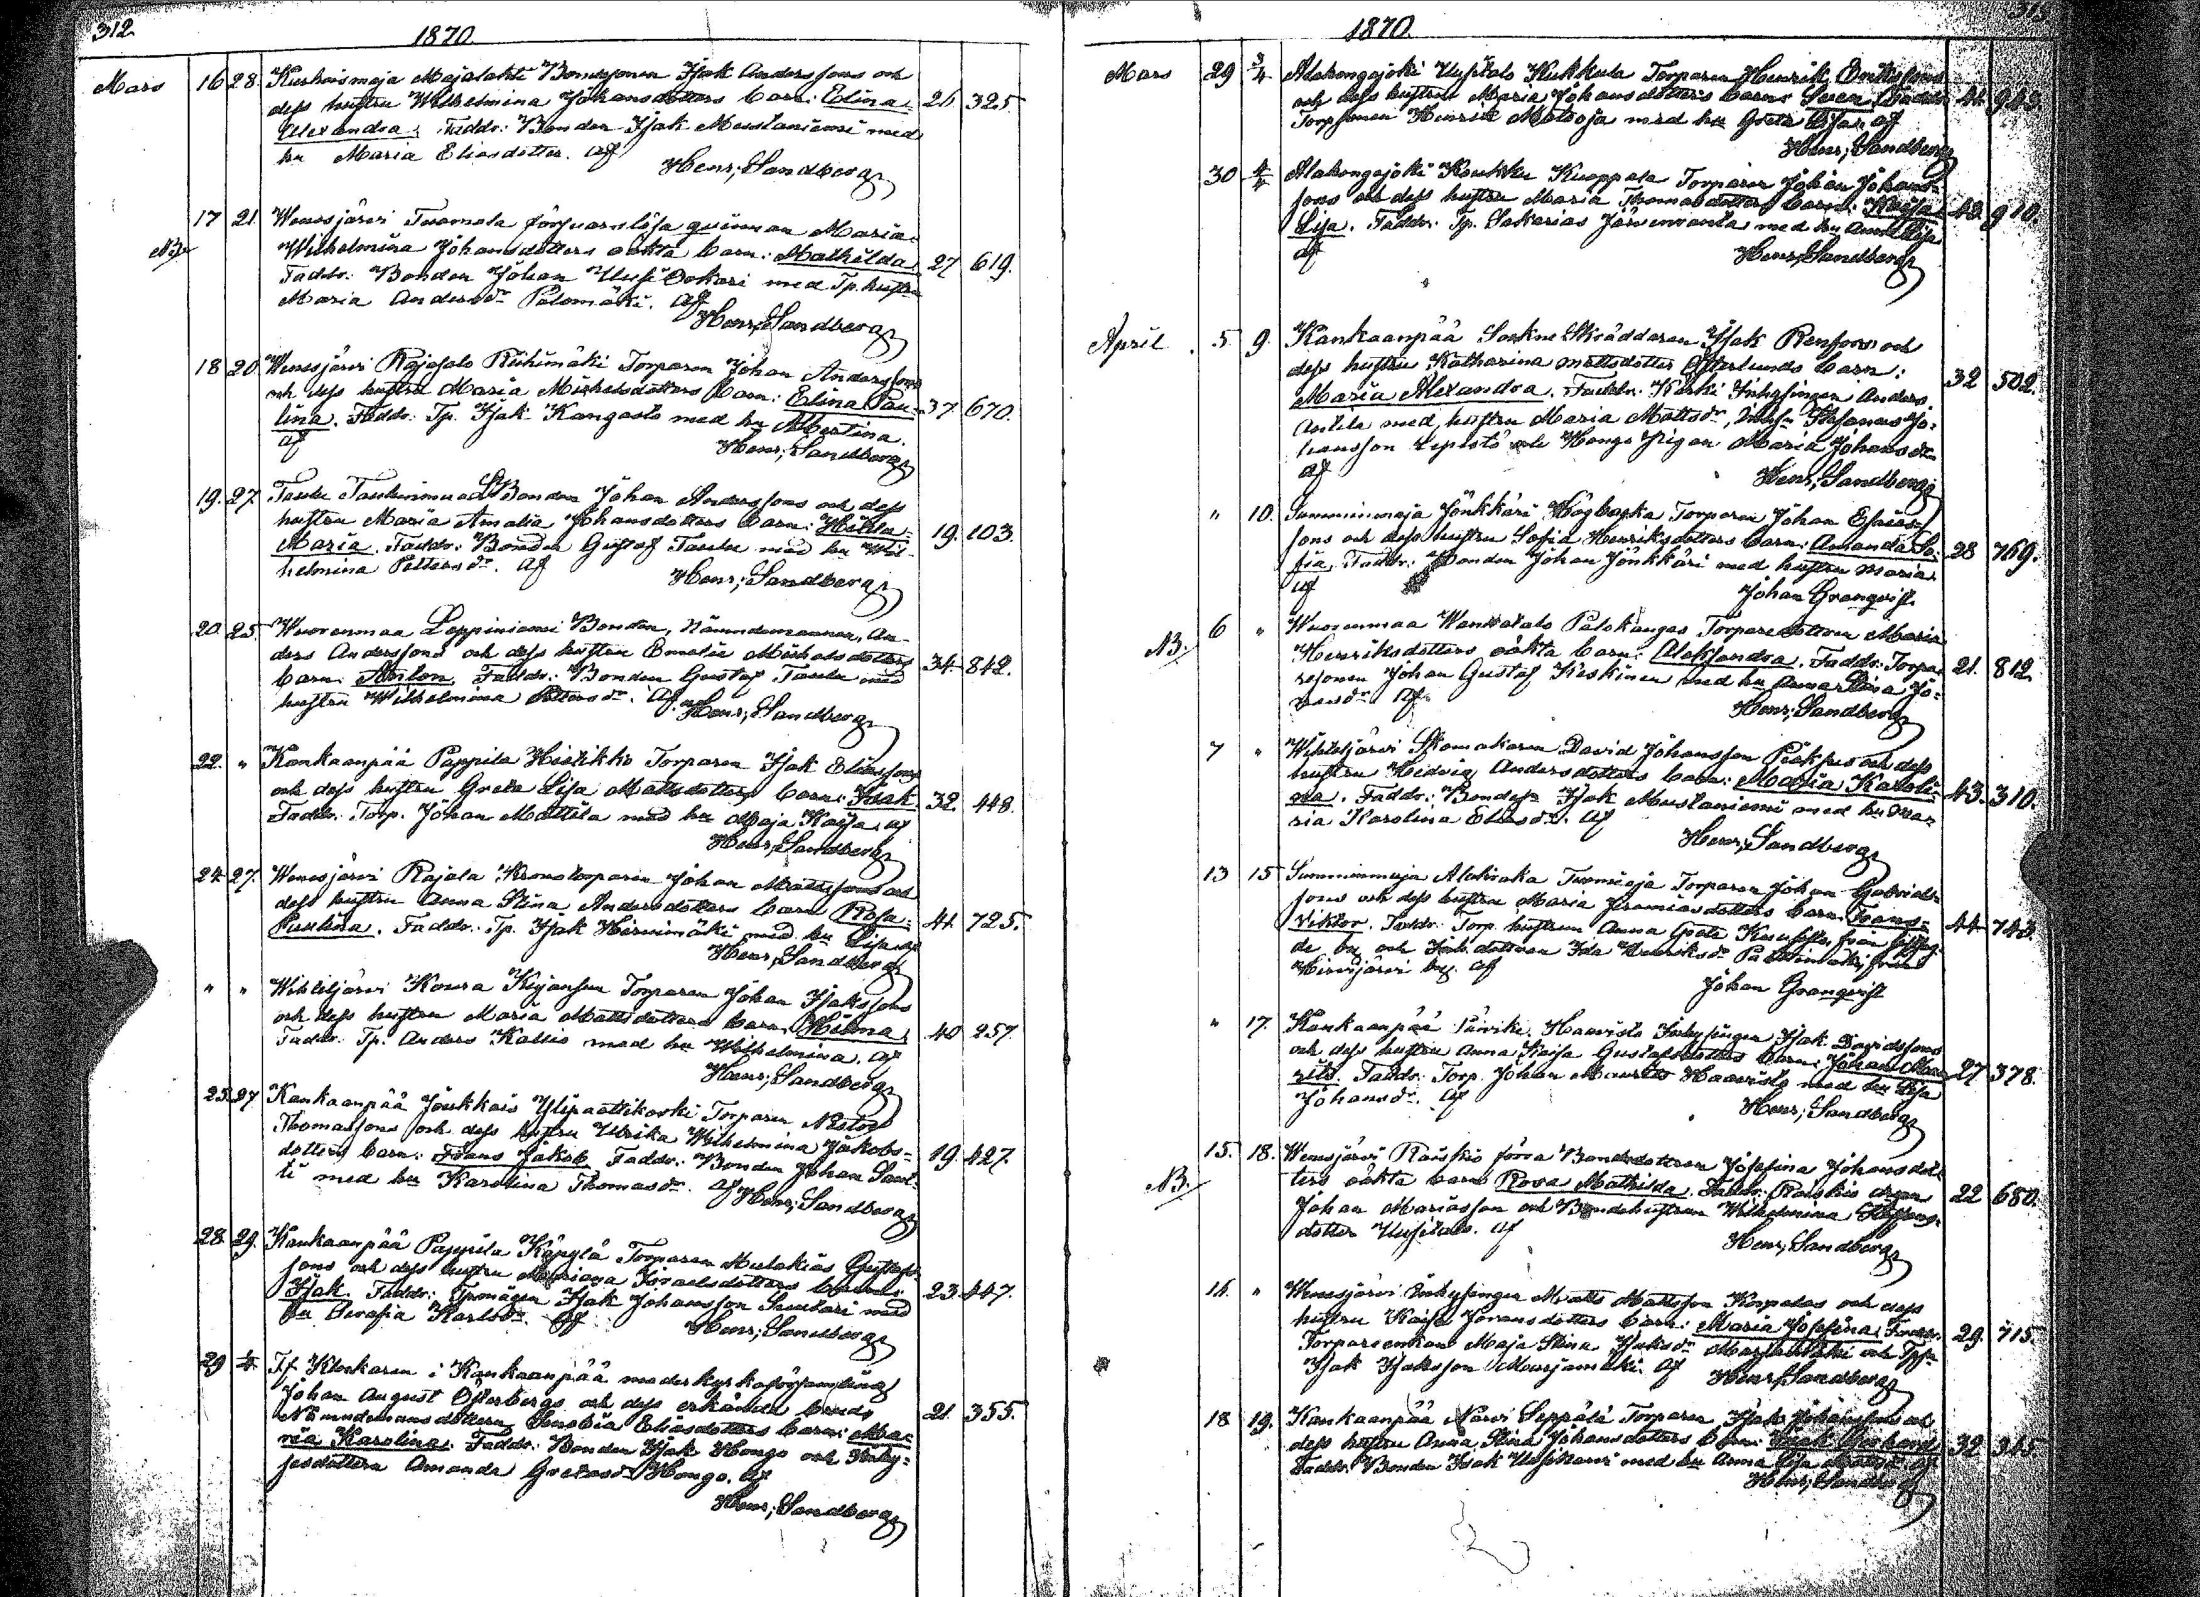 312
1870
Mars 16 28. Kurhoismaja Majalahti Bondesonen Isak Anderssons och
dess hustru Wilhelmina Johansdotters barn: Edina 26 325.
Alexandra. Faddr: Bonden Isak Mustaniemi med
hu Maria Eliasdotter. Af
Henr; Sandberg
17 21. Wenesjärvi Tuomola försvarslösa qvinnan Maria
NB. Wilhelmina Johansdotters oäkta barn: Mathilda 27 619.
Faddr. Bonden Johan Uusi Ookari med Tp. hustru
Maria Andersdr Palomäki. Af
Henr; Sandberg
18 20. Wenesjärvi Rajasalo Riihimäki Torparen Johan Anderssons
och dess hustru Maria Michelsdotters barn: Elina Pau- 37 670.
lina. Faddr: Tp. Isak Kangasto med hu Albertina.
af
Henr; Sandberg
19. 27. Taulu Bonden Johan Anderssons och dess
hustru Maria Amalia Johansdotters barn: Hilda 19. 103.
Maria. Faddr: Bonden Gustaf Taulu med hu Wil-
helmina Pettersdr. Af
Henr; Sandberg
20. 25. Wuorenmaa Leppiniemi Bonden, Nämndemannen, An-
ders Anderssons och dess hustru Emelia Michelsdotters 34 842.
barn: Anton. Faddr: Bonden Gustaf Taulu med
hustru Wilhelmina Pettersdr. Af
Henr; Sandberg
22. " Kankaanpää Pappila Hietikko Torparen Isak Eliassons
och dess hustru Greta Lisa Mattsdotters barn: Isak 32. 448.
Faddr: Torp. Johan Mattila med hu Maja Kaisa. af
Henr; Sandberg
24 27. Wenesjärvi Rajala Kronotorparen Johan Mattssons och
dess hustru Anna Stina Andersdotters barn Rosa 41 725.
Paulina. Faddr: Tp. Isak Hirvimäki med hu Lisa. af
Henr; Sandberg
" " Wihteljärvi Koura Torparen Johan Isakssons
och dess hustru Maria Mattsdotters barn Hilma. 40 257.
Faddr. Tp. Anders Kallio med hu Wilhelmina. Af
Henr; Sandberg
25. 27 Kankaanpää Joukkais Ylipaattikoski Torparen Nestor
Thomassons och dess hustru Ulrika Wilhelmina Jakobs-
dotters barn: Frans Jakob. Faddr: Bonden Johan 19. 427.
ti med hu Karolina Thomasdr. Af
Henr; Sandberg
28. 29. Kankaanpää Pappila Käpylä Torparen Malakias Gustafs-
sons och dess hustru Mariana Israelsdotters barn:
Isak. Faddr: Isak Johansson med 23. 447.
hu Serafia Karlsdr. Af
Henr; Sandberg
29 1/4 Tf Klockaren i Kankaanpää moderkyrkoförsamling
Johan August Österbergs och dess erkända bruds
Nämndemansdottern Eliasdotters barn: Ma- 21. 355.
ria Karolina. Faddr: Bonden Isak Hongo och Inhy-
sesdottern Amanda Gretasdr Hongo. Af
Henr; Sandberg
313
1870.
Mars 29 3/4 Alahongojoki Uusitalo Kukkula Torparen Henrik Erikssons
och dess hustru Maria Johansdotters barn: Faddr: 41. 942.
Torpsonen Henrik Matooja med hu Greta Lisa. af
Henr; Sandberg
30 4/4 Alahongojoki Koukku Kuoppala Torparen Johan Johans-
sons och dess hustru Maria Thomasdotters barn: Kaisa 43. 910.
Lisa. Faddr: Tp. Sakarias Järvenranta med hu Anna Lisa
af
Henr; Sandberg
April 5 9. Kankaanpää Sockne Skräddaren Isak Renfors och
dess hustru Katharina Mattsdotter Österlunds barn: 32 502.
Maria Alexandra. Faddr: Inhysingen Anders
Anttila med hustru Maria Mattsdr, Johansson Lepistö och Hongo Pigan Maria Johansdr
af
Henr; Sandberg
" 10. Summinmaja Jönkkäri Högbacka Torparen Johan Esaias-
sons och dess hustru Sofia Henriksdotters barn: Amanda So- 28 769.
fia. Faddr: Bonden Johan Jönkkäri med hustru Maria.
af
Johan Granqvist.
6 " Wuorenmaa Wankatalo Palokangas Torparedottern Maria
NB. Henriksdotters oäkta barn: Aleksandra. Faddr: Torpa- 21. 812.
resonen Johan Gustaf Keskinen med hu Anna Lisa Jo-
hansdr. Af
Henr; Sandberg
7 " Wihteljärvi Skomakaren David Johansson och dess
hustru Hedvig Andersdotters barn: Maria Karoli- 43. 310.
na. Faddr: Isak Mustaniemi med hu Ma-
ria Karolina Eliasdr. Af
Henr; Sandberg
13 15 Summinmaja Alahvaka Tuomioja Torparen Johan Gabriels-
sons och dess hustru Maria Jeremiasdotters barn: Frans 44 743.
Viktor. Faddr: Torp. hustrun Anna Greta från
by och dottern Ida Henriksdr från
Hirvijärvi by. af
Johan Granqvist
" 17. Kankaanpää Haavisto Inhysingen Isak Davidssons
och dess hustru Anna Kaisa Gustafsdotters barn: Johan Mau- 27 378.
rits. Faddr: Torp. Johan Maurits Haavisto med hu Lisa
Johansdr. Af
Henr; Sandberg
15. 18. Wenesjärvi Raiskio förra Bondedottern Josefina Johansdot-
NB. ters oäkta barn Rosa Mathilda. Faddr: Raiskio drgen 22 680.
Johan Mariasson och Bondehustrun Wilhelmina
dotter Uusitalo. af
Henr; Sandberg
16. " Wenesjärvi Inhysingen Matts Mattsson Korpelas och dess
hustru Kaisa Johansdotters barn: Maria Josefina. Faddr: 29. 715.
Torpareenkan Maja Stina Isaksdr Marjamäki och Tpsn
Isak Isaksson Marjamäki. af
Henr; Sandberg
18 19. Kankaanpää Närvi Seppälä Torparen Isak Johanssons och
dess hustru Anna Stina Johansdotters barn: Isak Gerhard 32 345.
Faddr: Bonden Isak med hu Anna Lisa Mattsdr. af
Henr; Sandberg